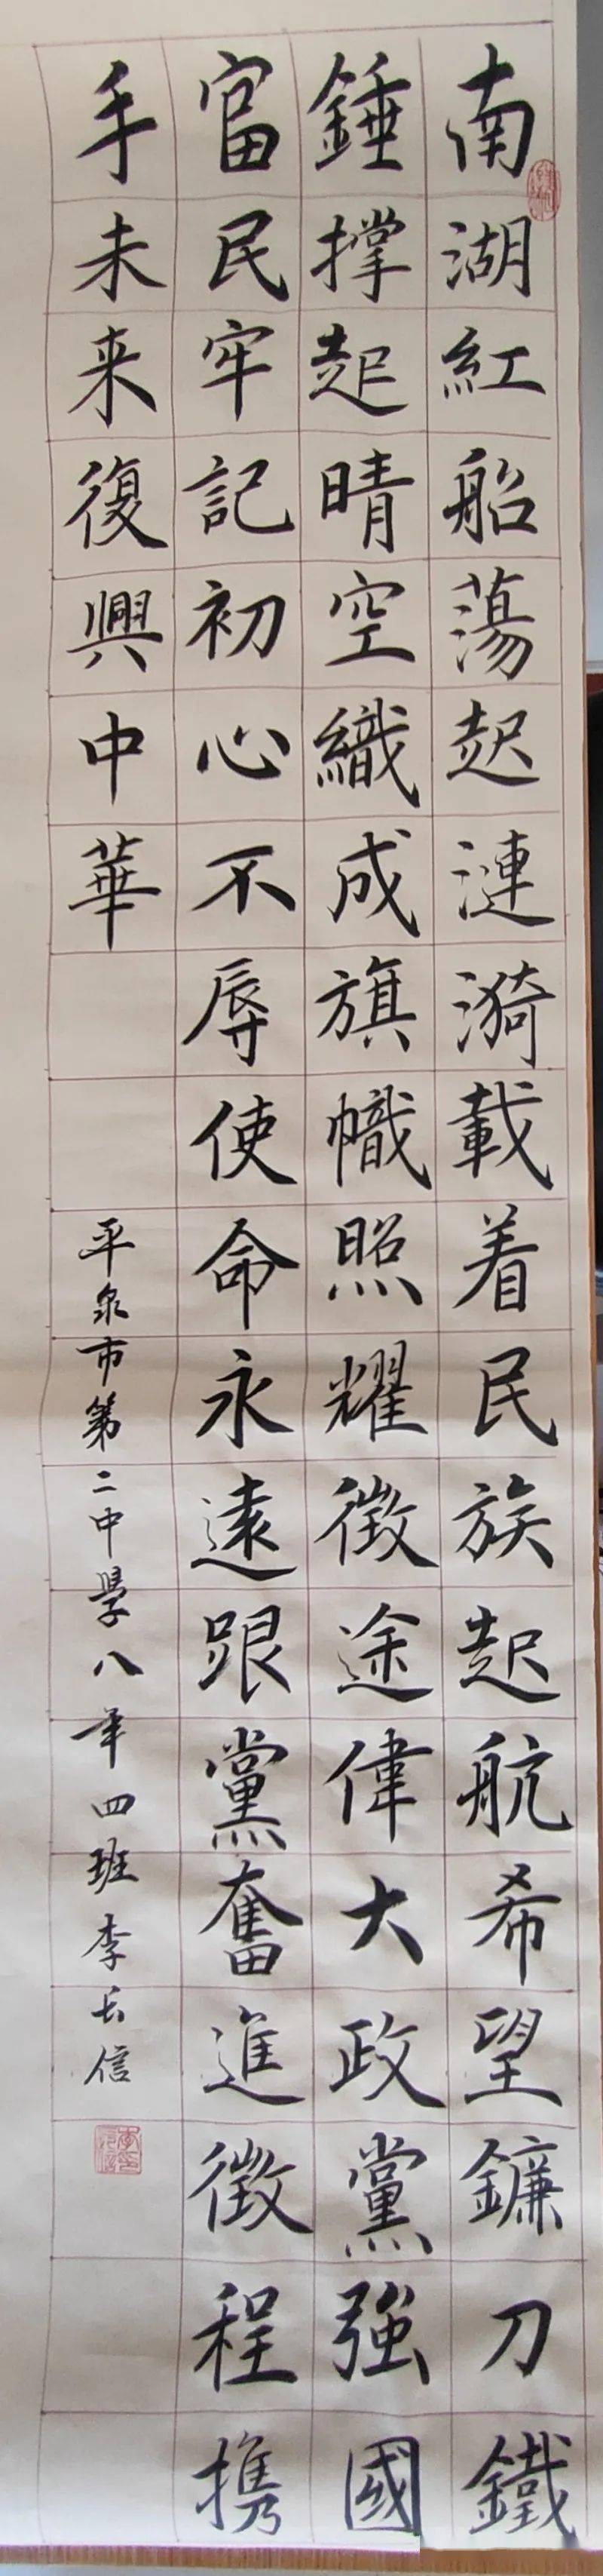 南湖紅船蕩起漣漪載着民族起航希望鐮刀鐵
錘撑起晴空織成旗幟照耀徵途偉大政黨強國
富民牢記初心不辱使命永遠跟黨奮進徵程携
手未来復興中華
平泉市第二中學八年四班李长信